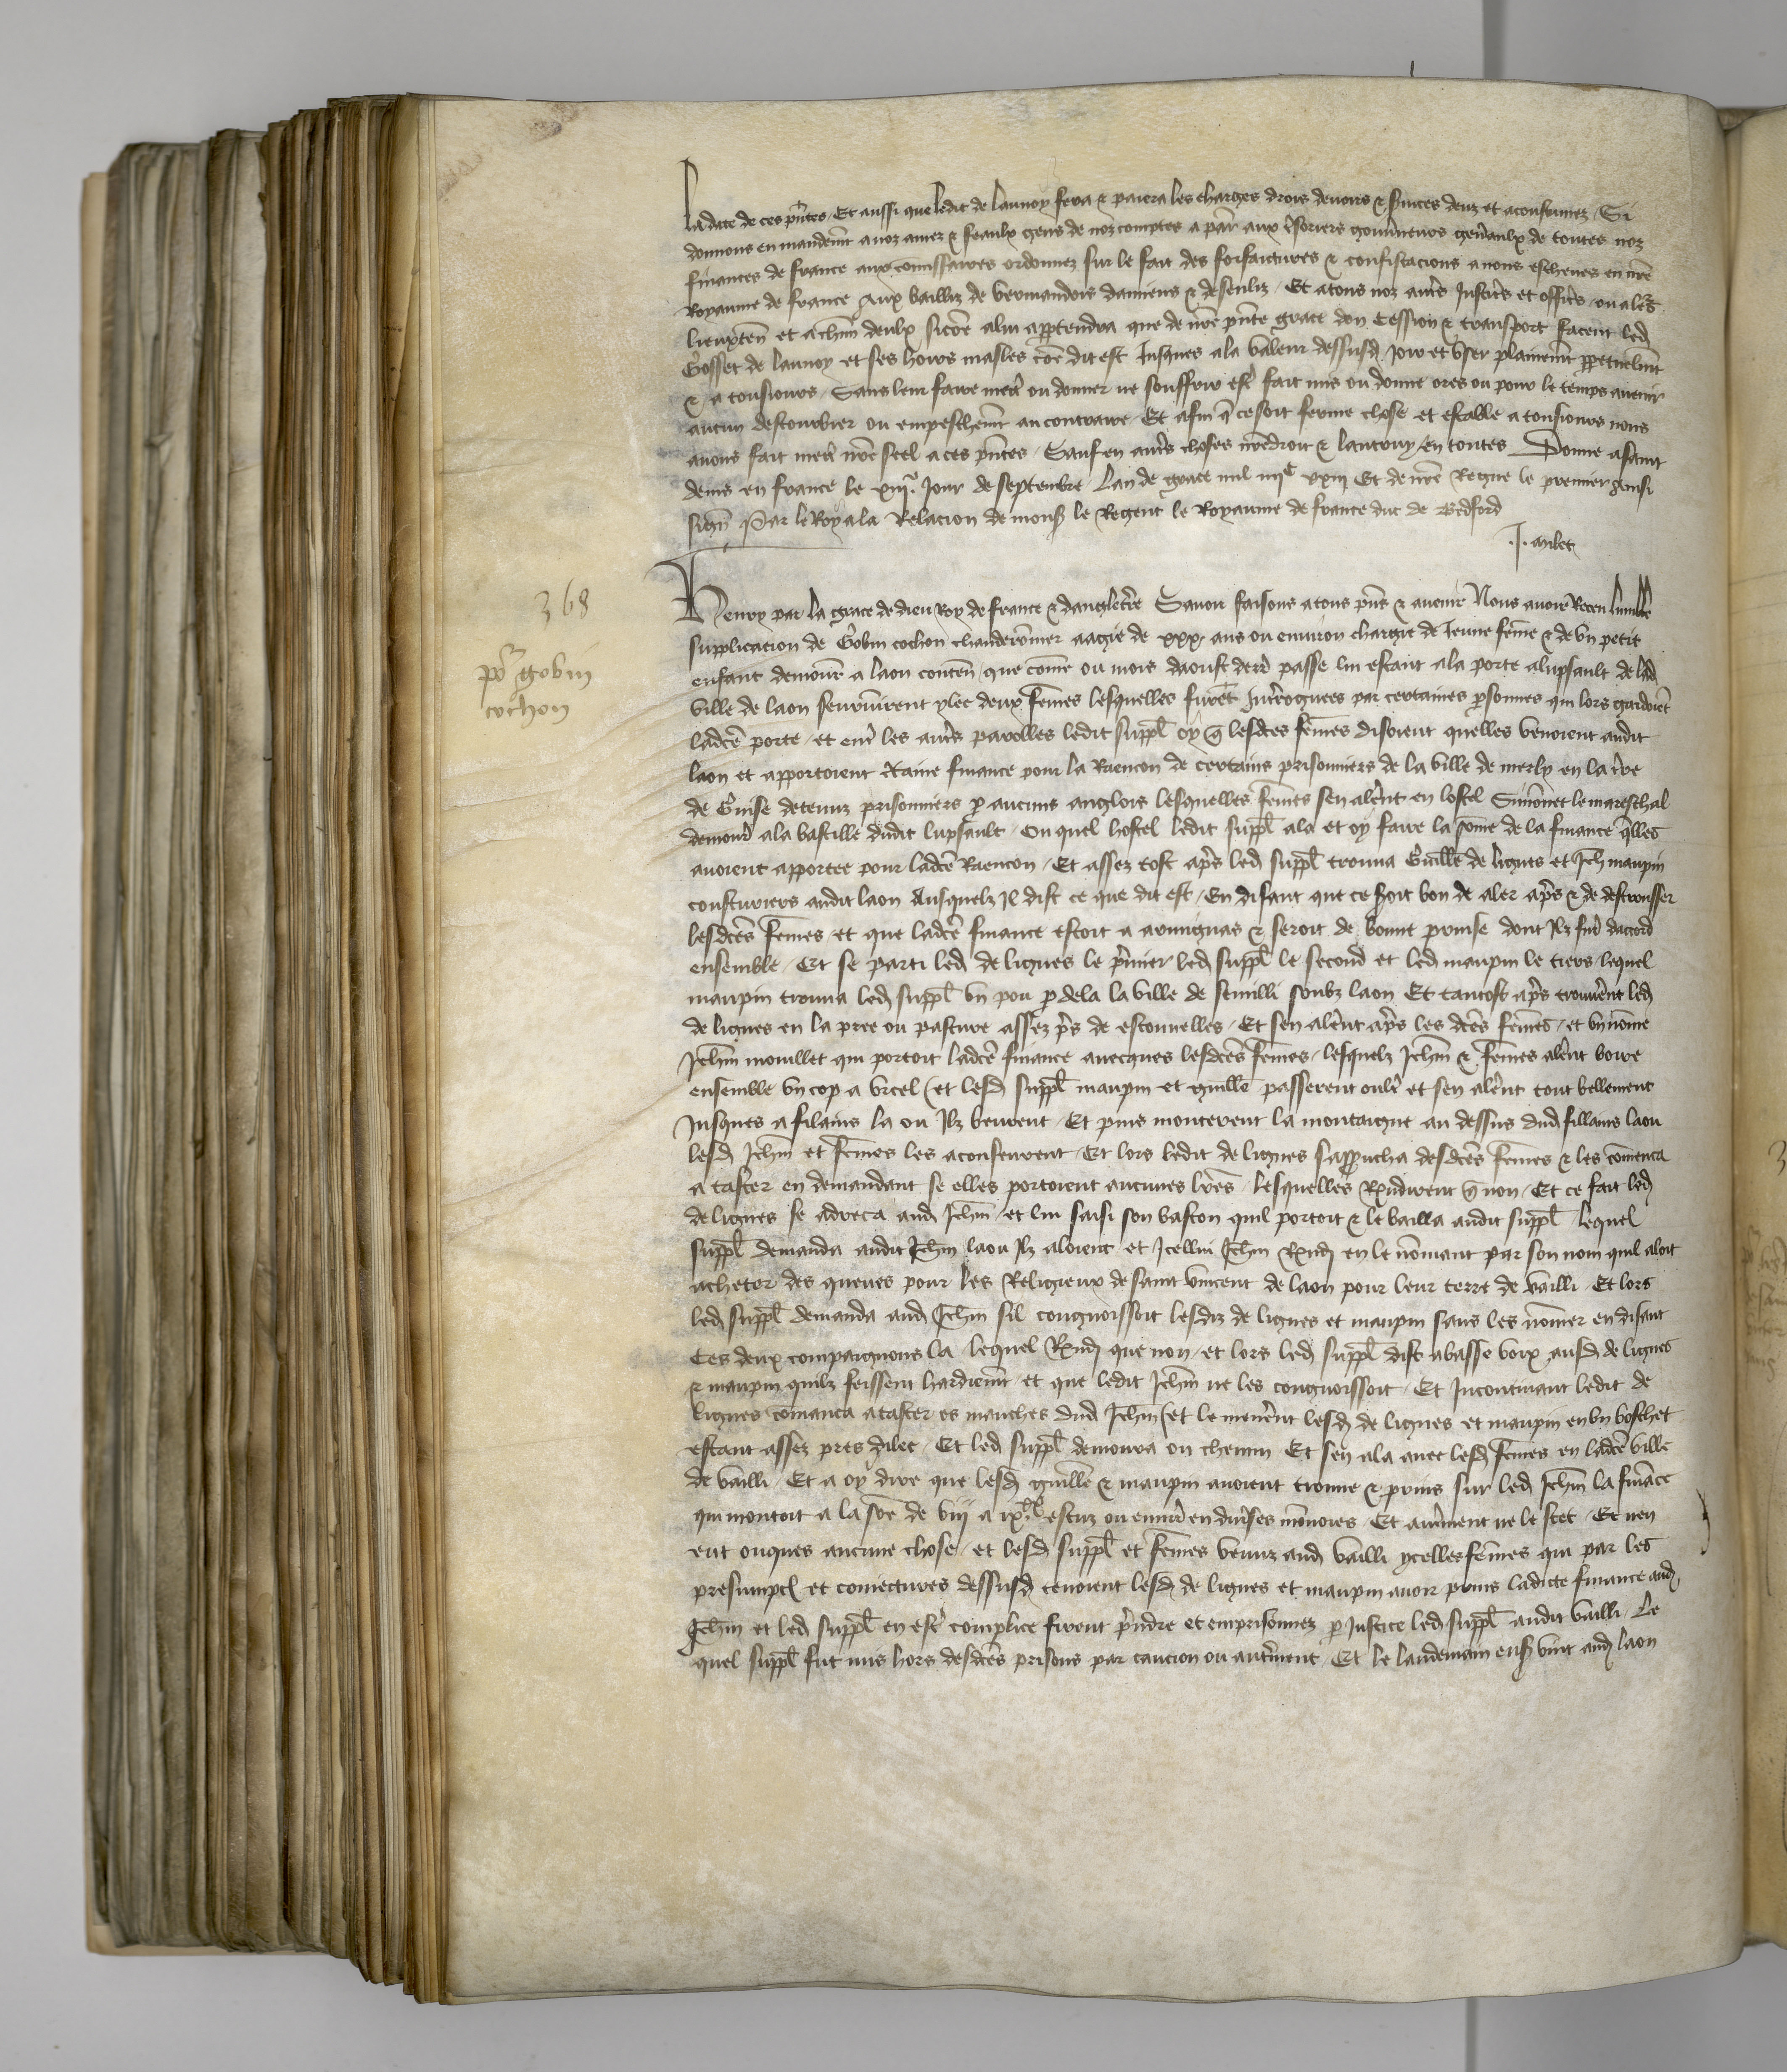 la date de ces pntes Et aussi que ledit de launoy fera & paiera les charges drois devoirs & svices deuz et acoustumez Si
donnons en mandemt a noz amez & feaulx gens de noz comptes a par aux tsoriers gouvneurs genaulx de toutes noz
finances de france aux comissaires ordonnez sur le fait des forfaictures & confiscacions a nous escheues en nre
Royaume de france aux bailliz de vermandois damiens & de senliz Et a tous noz autrs Justicrs et officrs ou a leurs
lieuxten et a chun deulx sicoe a lui apptendra que de nre pnte grace don Cession & transport facent led
Gosset de launoy et ses hoirs masles coe dit est Jusques a la valeur dessusd Joir et vser plainemt ppetuelmt
& a tousiours Sans leur faire mett ou donner ne souffrir est fait mis ou donne ores ou pour le temps avenir
aucun destourbier ou empeschemt au contraire Et afin q ce soit ferme chose et estable a tousiours nous
avons fait mett nre seel a ces pntes Sauf en autrs choses nre droit & lautruy en toutes Donne a saint
denis en france le xiiie Jour de septembre Lan de grace mil iiiic xxiii Et de nre Regne le premier ainsi
sign Par le Roy a la Relacion de mons le Regent le Royaume de france duc de Bedford
.J. milet
368
po gobin
cochon
Henry par la grace de dieu Roy de france & dangletere Savoir faisons a tous pns & avenir Nous avoir Receu lumble
supplicacion de Gobin cochon chauderonnier aagie de xxx ans ou environ chargie de Jeune feme & de vn petit
enfant demour a laon conten que come ou mois daoust derr passe lui estant a la porte a lupsault de lad
ville de laon seurvinrent ylec deux femes lesquelles furet Jntroguees par certaines psonnes qui lors gardoiet
ladce porte et entr les autrs parolles ledit suppl oy q lesdces femes disoient quelles venoient audit
laon et apportoient ctaine finance pour la Raencon de certains prisonniers de la ville de merly en la tre
de Guise detenuz prisonniers p aucuns anglois lesquelles femes sen alernt en lostel Simonet le mareschal
demour a la bastille dudit lupsault Ou quel hostel ledit suppl ala et oy faire la some de la finance qlles
avoient apportee pour ladce Raencon Et assez tost aprs led suppl trouva Guille de lignes et Jeh maupin
cousturiers audit laon Ausquelz Il dist ce que dit est En disant que ce soit bon de aler aprs & de destrousser
lesdces femes et que ladce finance estoit a arminguas & seroit de bonne prinse dont Ilz fur daccord
ensemble Et se parti led de lignes le prmier led suppl le second et led maupin le tiers lequel
maupin trouva led suppl vn pou p dela la ville de semilli soubz laon Et tantost aprs trouvernt led
de lignes en la pree ou pasture assez prs de estouvelles Et sen alernt aprs les dces femes et vn nome
Jehan mouillet qui portoit ladce finance avecques lesdces femes lesquelz Jehan & femes alernt boire
ensemble vn cop a vrcel et lesd suppl maupin et guille passerent oultr et sen alernt tout bellement
Jusques a filains la ou Ilz beurent Et puis monterent la montaigne au dessus dud fillains laou
lesd Jehan et femes les aconseurent Et lors ledit de lignes sapproucha desdces femes & les comenca
a taster en demandant se elles portoient aucunes lres lesquelles Rndirent q non Et ce fait led
de lignes se adreca aud Jehan et lui saisi son baston quil portoit & le bailla audit suppl lequel
suppl demanda audit Jehan laou Ilz aloient et Icellui Jehan Rnd en le nomant par son nom quil aloit
acheter des queues pour les Religieux de saint vincent de laon pour leur terre de vailli Et lors
led suppl demanda aud Jehan sil congnoissoit lesdiz de lignes et maupin sans les nomer en disant
Ces deux compaignons la lequel Rnd que non et lors led suppl dist a basse voix ausd de lignes
& maupin quilz feissent hardiemt et que ledit Jehan ne les congnoissoit Et Incontinant ledit de
lignes comanca a taster es manches dud Jehan et le menernt lesd de lignes et maupin en vn boschet
estant assez pres dilec Et led suppl demoura ou chemin Et sen ala avec lesd femes en ladce ville
de vailli Et a oy dire que lesd guille & maupin avoient trouve & prins sur led Jehan la finace
qui montoit a la soe de viij a ix escuz ou envir en divses monnoies Et autrment ne le scet Et nen
eut onques aucune chose et lesd suppl et femes venuz aud vailli ycelles femes qui par les
presumpcs et coniectures dessusd tenoient lesd de lignes et maupin avoir prins ladicte finance aud
Jehan et led suppl en estr complice firent prndre et emprisonnez p Justice led suppl audit vailli Le
quel suppl fut mis hors desdces prisons par caucion ou autrment Et le landemain ens vint aud laon